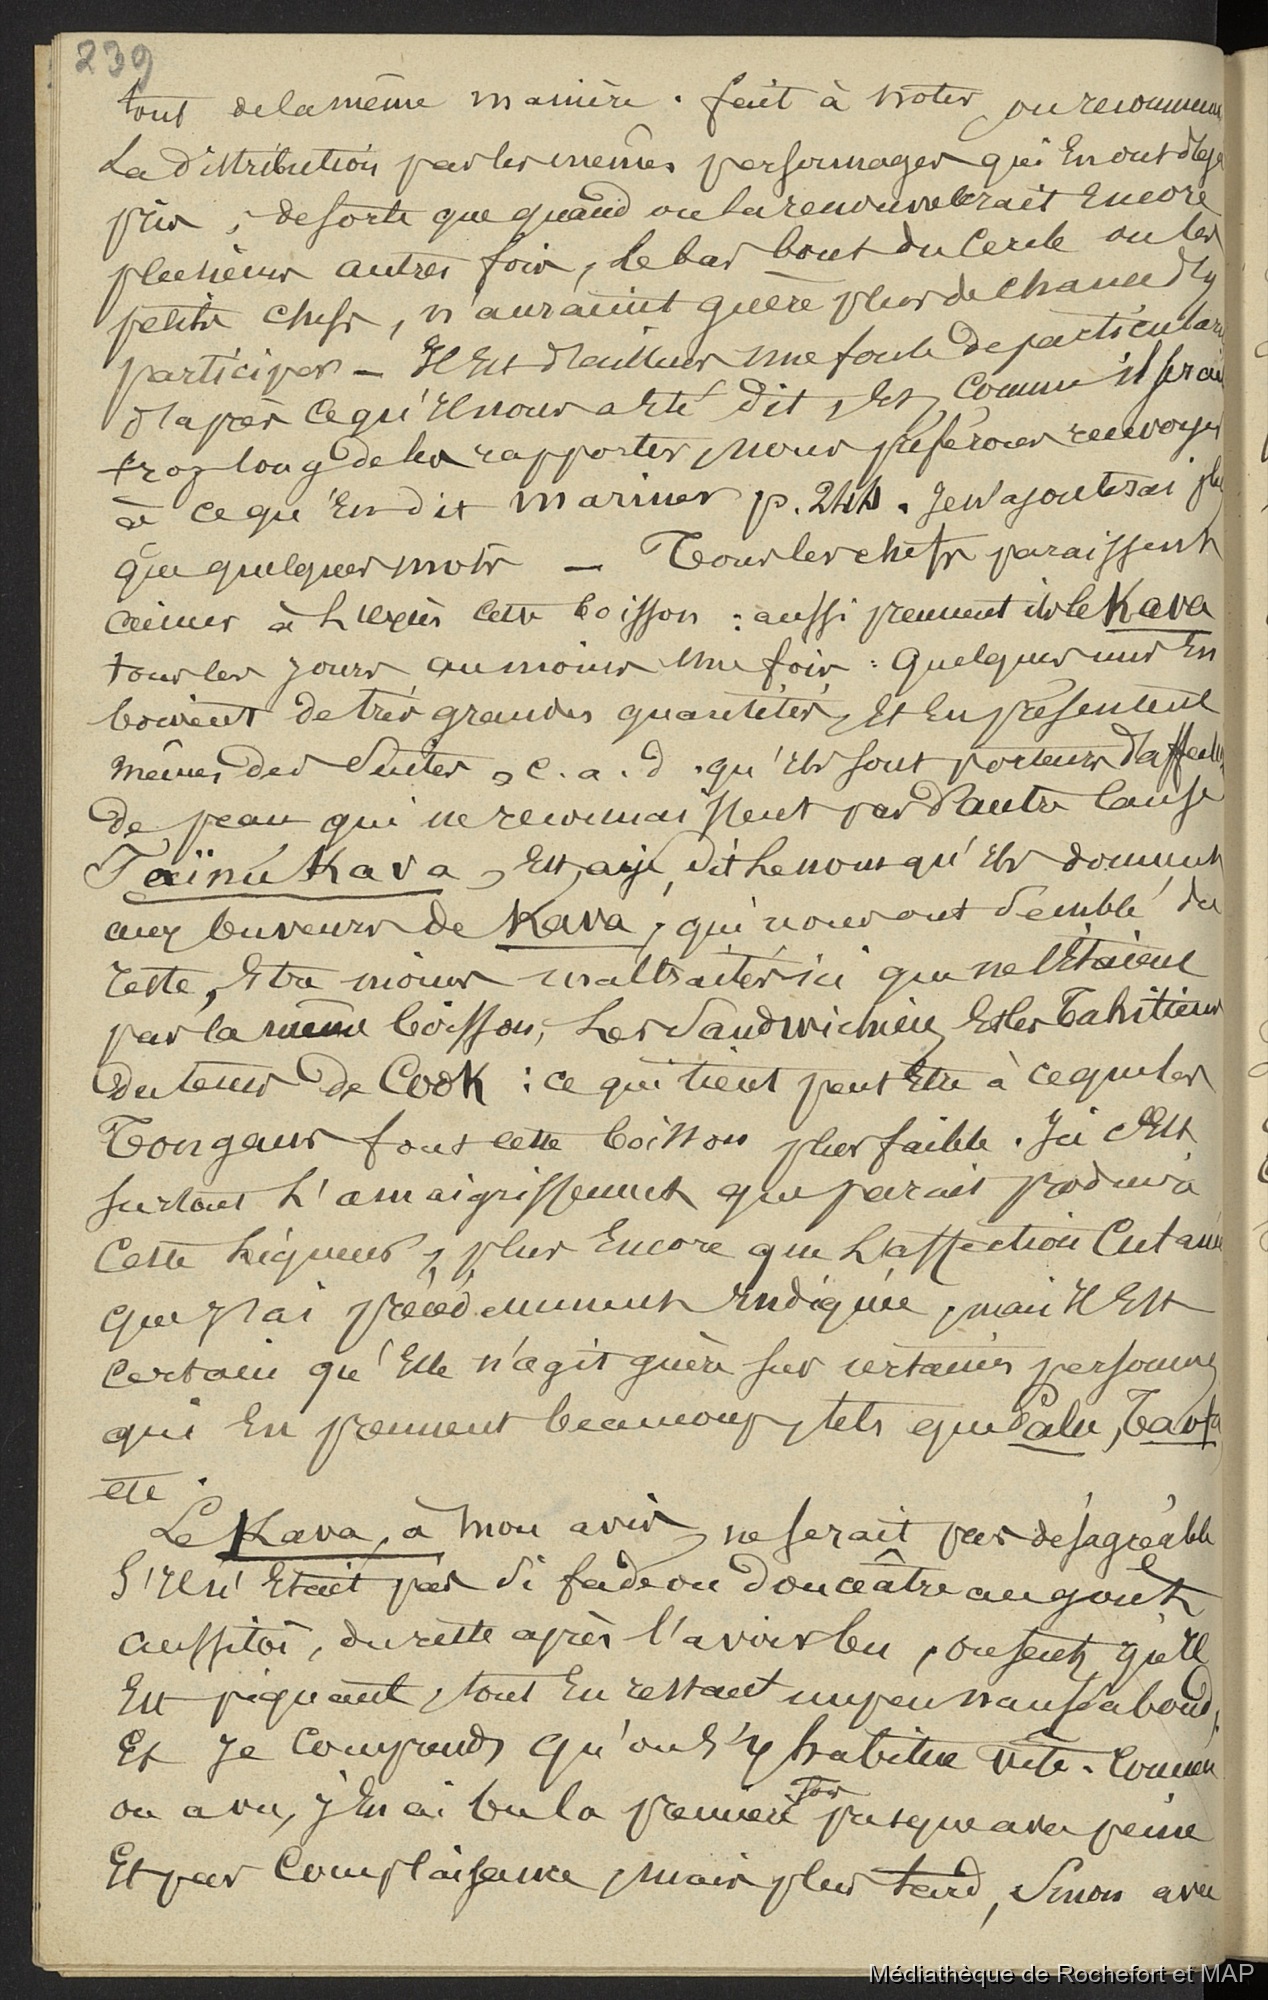 239
tout de la même manière. fait à noter, on recommence
la distribution par les mêmes personnages qui en ont déjà
pris, de sorte que quand on la renouvellerait encore
plusieurs autres fois, le bas bout du cercle ou les
petits chefs, n'auraient guère plus de chance d'y
participer — Il est d'ailleurs une foule de particular
d'après ce qu'il nous a été dit, et, comme il serait
trop long de les rapporter, nous préférons renvoyer
à ce qu'en dit Mariner p. 244. Je n'ajouterai plus
que quelques mots — Tous les chefs paraissent
aimer à l'excès cette boisson : aussi prennent ils le Kava
tous les jours au moins une fois : quelques uns en
boivent de très grandes quantités, et en présentent
mêmes des suites, c. a. d. qu'ils sont porteurs d'affections
de peau qui ne reconnaissent pas d'autre cause
Taïnú Kava, est, ai-je dit le nom qu'ils donnent
aux buveurs de Kava, qui nous ont semblé du
reste, être moins maltraités ici que ne l'étaient
par la même boisson, les Sandwichiens et les Tahitiens
du tems de Cook : ce qui tient peut être à ce que les
Tongans font cette boisson plus faible. Ici c'est
surtout l'amaigrissement que parait produire
cette liqueur, plus encore que l'affection cutanée
que j'ai précédemment indiquée, mais il est
certain qu'elle n'agit guère sur certaines personnes
qui en prennent beaucoup, tels que Palu, Taofa
etc.
Le Kava, à mon avis, ne serait pas désagréable
s'il n'était pas si fade ou douceâtre au goût
aussitôt, du reste après l'avoir bu, on sent qu'il
est piquant, tout en restant un peu nauséabond,
et je comprends qu'on s'y habitue vite. Comme
on a vu, j'en ai bu la première fois presque avec peine
et par complaisance, mais plus tard, sinon avec
Médiathèque de Rochefort et MAP